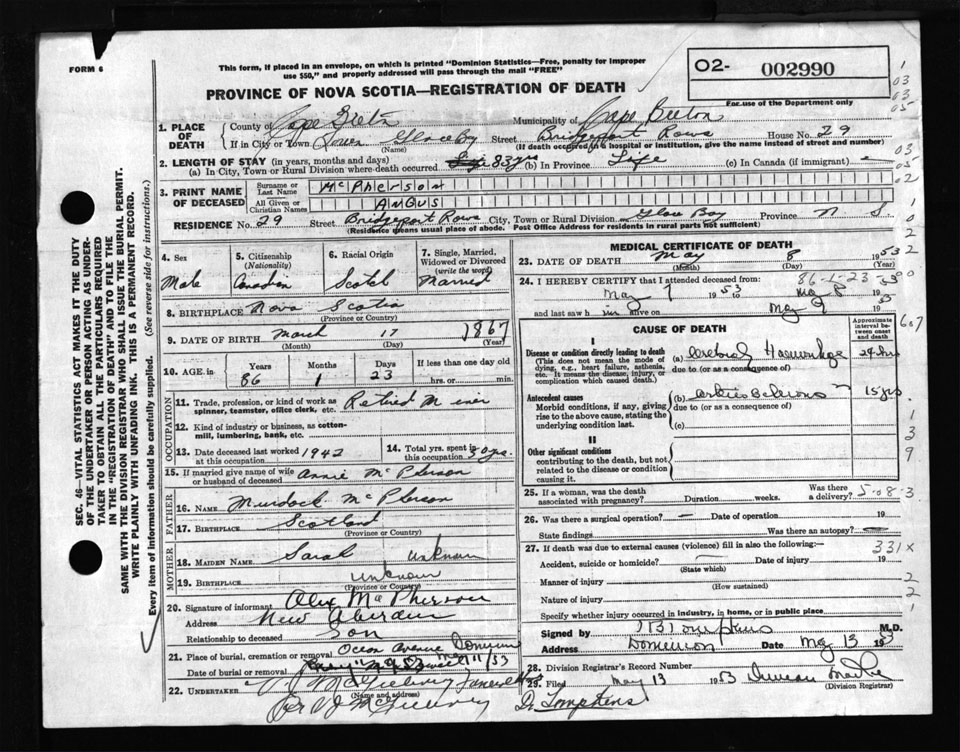 FORM 6
This form, if placed in an envelope, on which is printed "Dominion Statistics—Free, penalty for improper
use $50," and properly addressed will pass through the mail "FREE"
PROVINCE OF NOVA SCOTIA—REGISTRATION OF DEATH
O2- 002990
For use of the Department only
1. PLACE OF DEATH
County of Cape Breton Municipality of Cape Breton
If in City or Town Glace Bay Street Bridgeport Rows House No. 29
(Name) (If death occurred in a hospital or institution, give name instead of street and number)
2. LENGTH OF STAY (in years, months and days)
(a) In City, Town or Rural Division where death occurred 83 yrs (b) In Province Life (c) In Canada (if immigrant) —
3. PRINT NAME OF DECEASED
Surname or Last Name McPHERSON
All Given or Christian Names ANGUS
RESIDENCE No. 29 Street Bridgeport Rows City, Town or Rural Division Glace Bay Province N S.
(Residence means usual place of abode. Post Office Address for residents in rural parts not sufficient)
4. Sex
Male
5. Citizenship (Nationality)
Canadian
6. Racial Origin
Scotch
7. Single, Married, Widowed or Divorced (write the word)
Married
8. BIRTHPLACE Nova Scotia
(Province or Country)
9. DATE OF BIRTH March 17 1867
(Month) (Day) (Year)
10. AGE in Years Months Days If less than one day old
86 1 23 hrs. or min.
OCCUPATION
11. Trade, profession, or kind of work as spinner, teamster, office clerk, etc. Retired Miner
12. Kind of industry or business, as cotton-mill, lumbering, bank, etc.
13. Date deceased last worked at this occupation 1942
14. Total yrs. spent in this occupation 50 yrs.
15. If married give name of wife or husband of deceased Annie McPherson
FATHER
16. NAME Murdock McPherson
17. BIRTHPLACE Scotland
(Province or Country)
MOTHER
18. MAIDEN NAME Sarah unknown
19. BIRTHPLACE unknown
(Province or Country)
20. Signature of informant Alex McPherson
Address New Aberdeen
Relationship to deceased Son
21. Place of burial, cremation or removal Ocean Avenue
Date of burial or removal May 11/53
22. UNDERTAKER
(Name and address)
MEDICAL CERTIFICATE OF DEATH
23. DATE OF DEATH May 8 1953
(Month) (Day) (Year)
86-1-23
24. I HEREBY CERTIFY that I attended deceased from:
May 7 1953 to May 8 1953
and last saw him alive on May 1953
CAUSE OF DEATH
Approximate interval between onset and death
I
Disease or condition directly leading to death
(This does not mean the mode of dying, e.g., heart failure, asthenia, etc. It means the disease, injury, or complication which caused death.)
(a) Cerebral Haemorrhage 24 hrs
due to (or as a consequence of)
Antecedent causes
Morbid conditions, if any, giving rise to the above cause, stating the underlying condition last.
(b) Arteriosclerosis 15 yrs
due to (or as a consequence of)
(c)
II
Other significant conditions
contributing to the death, but not related to the disease or condition causing it.
25. If a woman, was the death associated with pregnancy? Duration weeks. Was there a delivery?
5-08-3
26. Was there a surgical operation? — Date of operation 19
State findings Was there an autopsy? —
27. If death was due to external causes (violence) fill in also the following:—
331X
Accident, suicide or homicide? Date of injury 19
(State which)
Manner of injury
(How sustained)
Nature of injury
Specify whether injury occurred in industry, in home, or in public place
Signed by Tompkins M.D.
Address Dominion Date May 13 1953
28. Division Registrar's Record Number
29. Filed May 13 1953 Duncan
(Division Registrar)
Dr Tompkins
SEC. 46—VITAL STATISTICS ACT MAKES IT THE DUTY
OF THE UNDERTAKER OR PERSON ACTING AS UNDER-
TAKER TO OBTAIN ALL THE PARTICULARS REQUIRED
IN THE "REGISTRATION OF DEATH" AND TO FILE THE
SAME WITH THE DIVISION REGISTRAR WHO SHALL ISSUE THE BURIAL PERMIT.
WRITE PLAINLY WITH UNFADING INK. THIS IS A PERMANENT RECORD.
Every item of information should be carefully supplied. (See reverse side for instructions.)